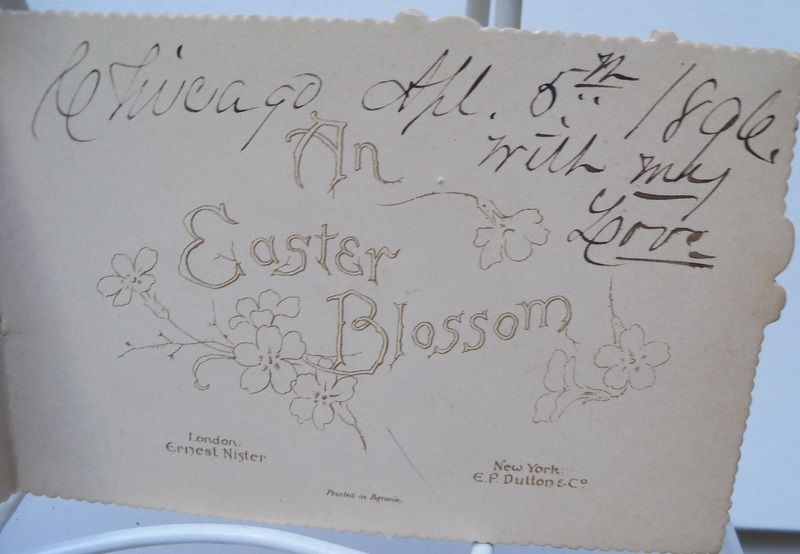 Chicago Apl. 5th 1896.
with my
Love
An
Easter
Blossom
London:
Ernest Nister
New York:
E. P. Dutton & Co.
Printed in Bavaria.